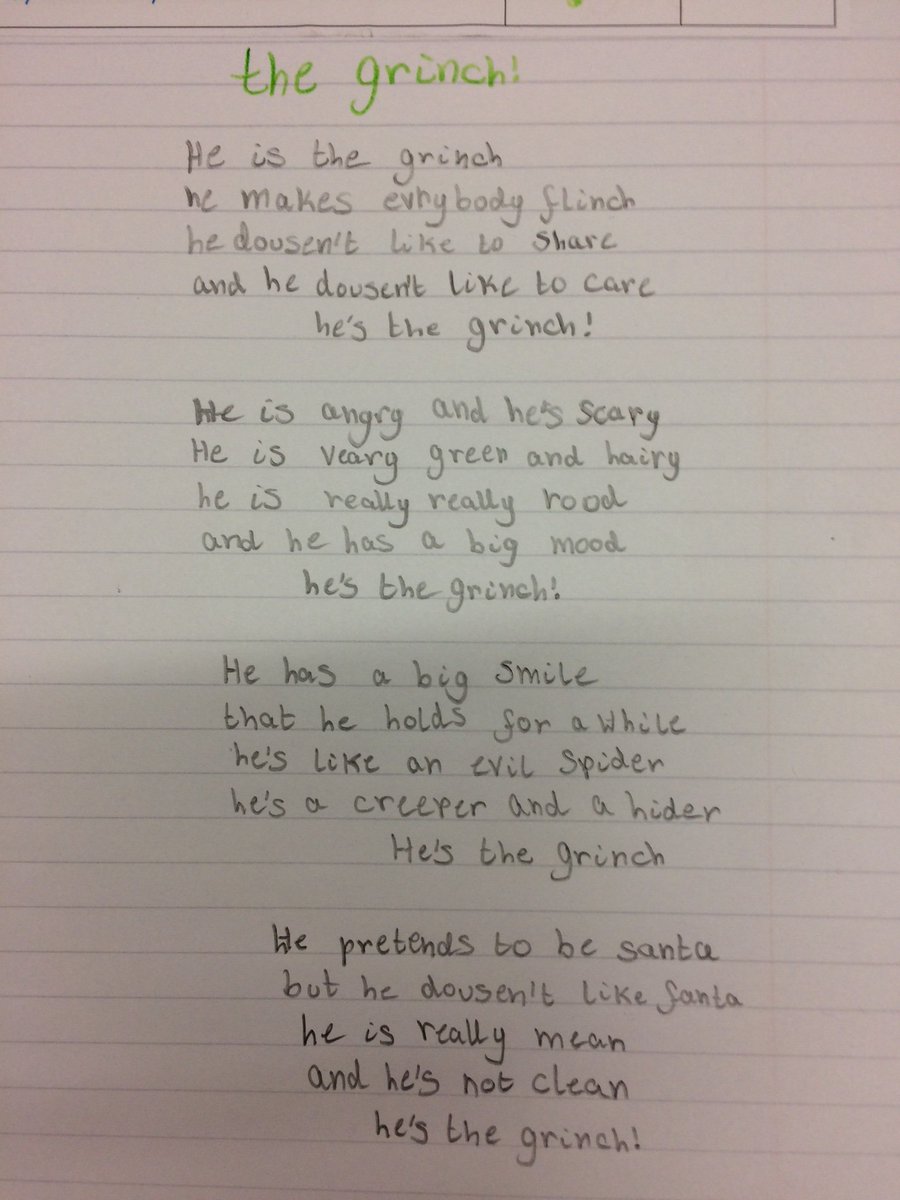 the grinch!
He is the grinch
he makes evrybody flinch
he dousen't like to share
and he dousen't like to care
he's the grinch!
He is angry and he's scary
He is veary green and hairy
he is really really rood
and he has a big mood
he's the grinch!
He has a big smile
that he holds for a while
he's like an evil spider
he's a creeper and a hider
He's the grinch
He pretends to be santa
but he dousen't like fanta
he is really mean
and he's not clean
he's the grinch!